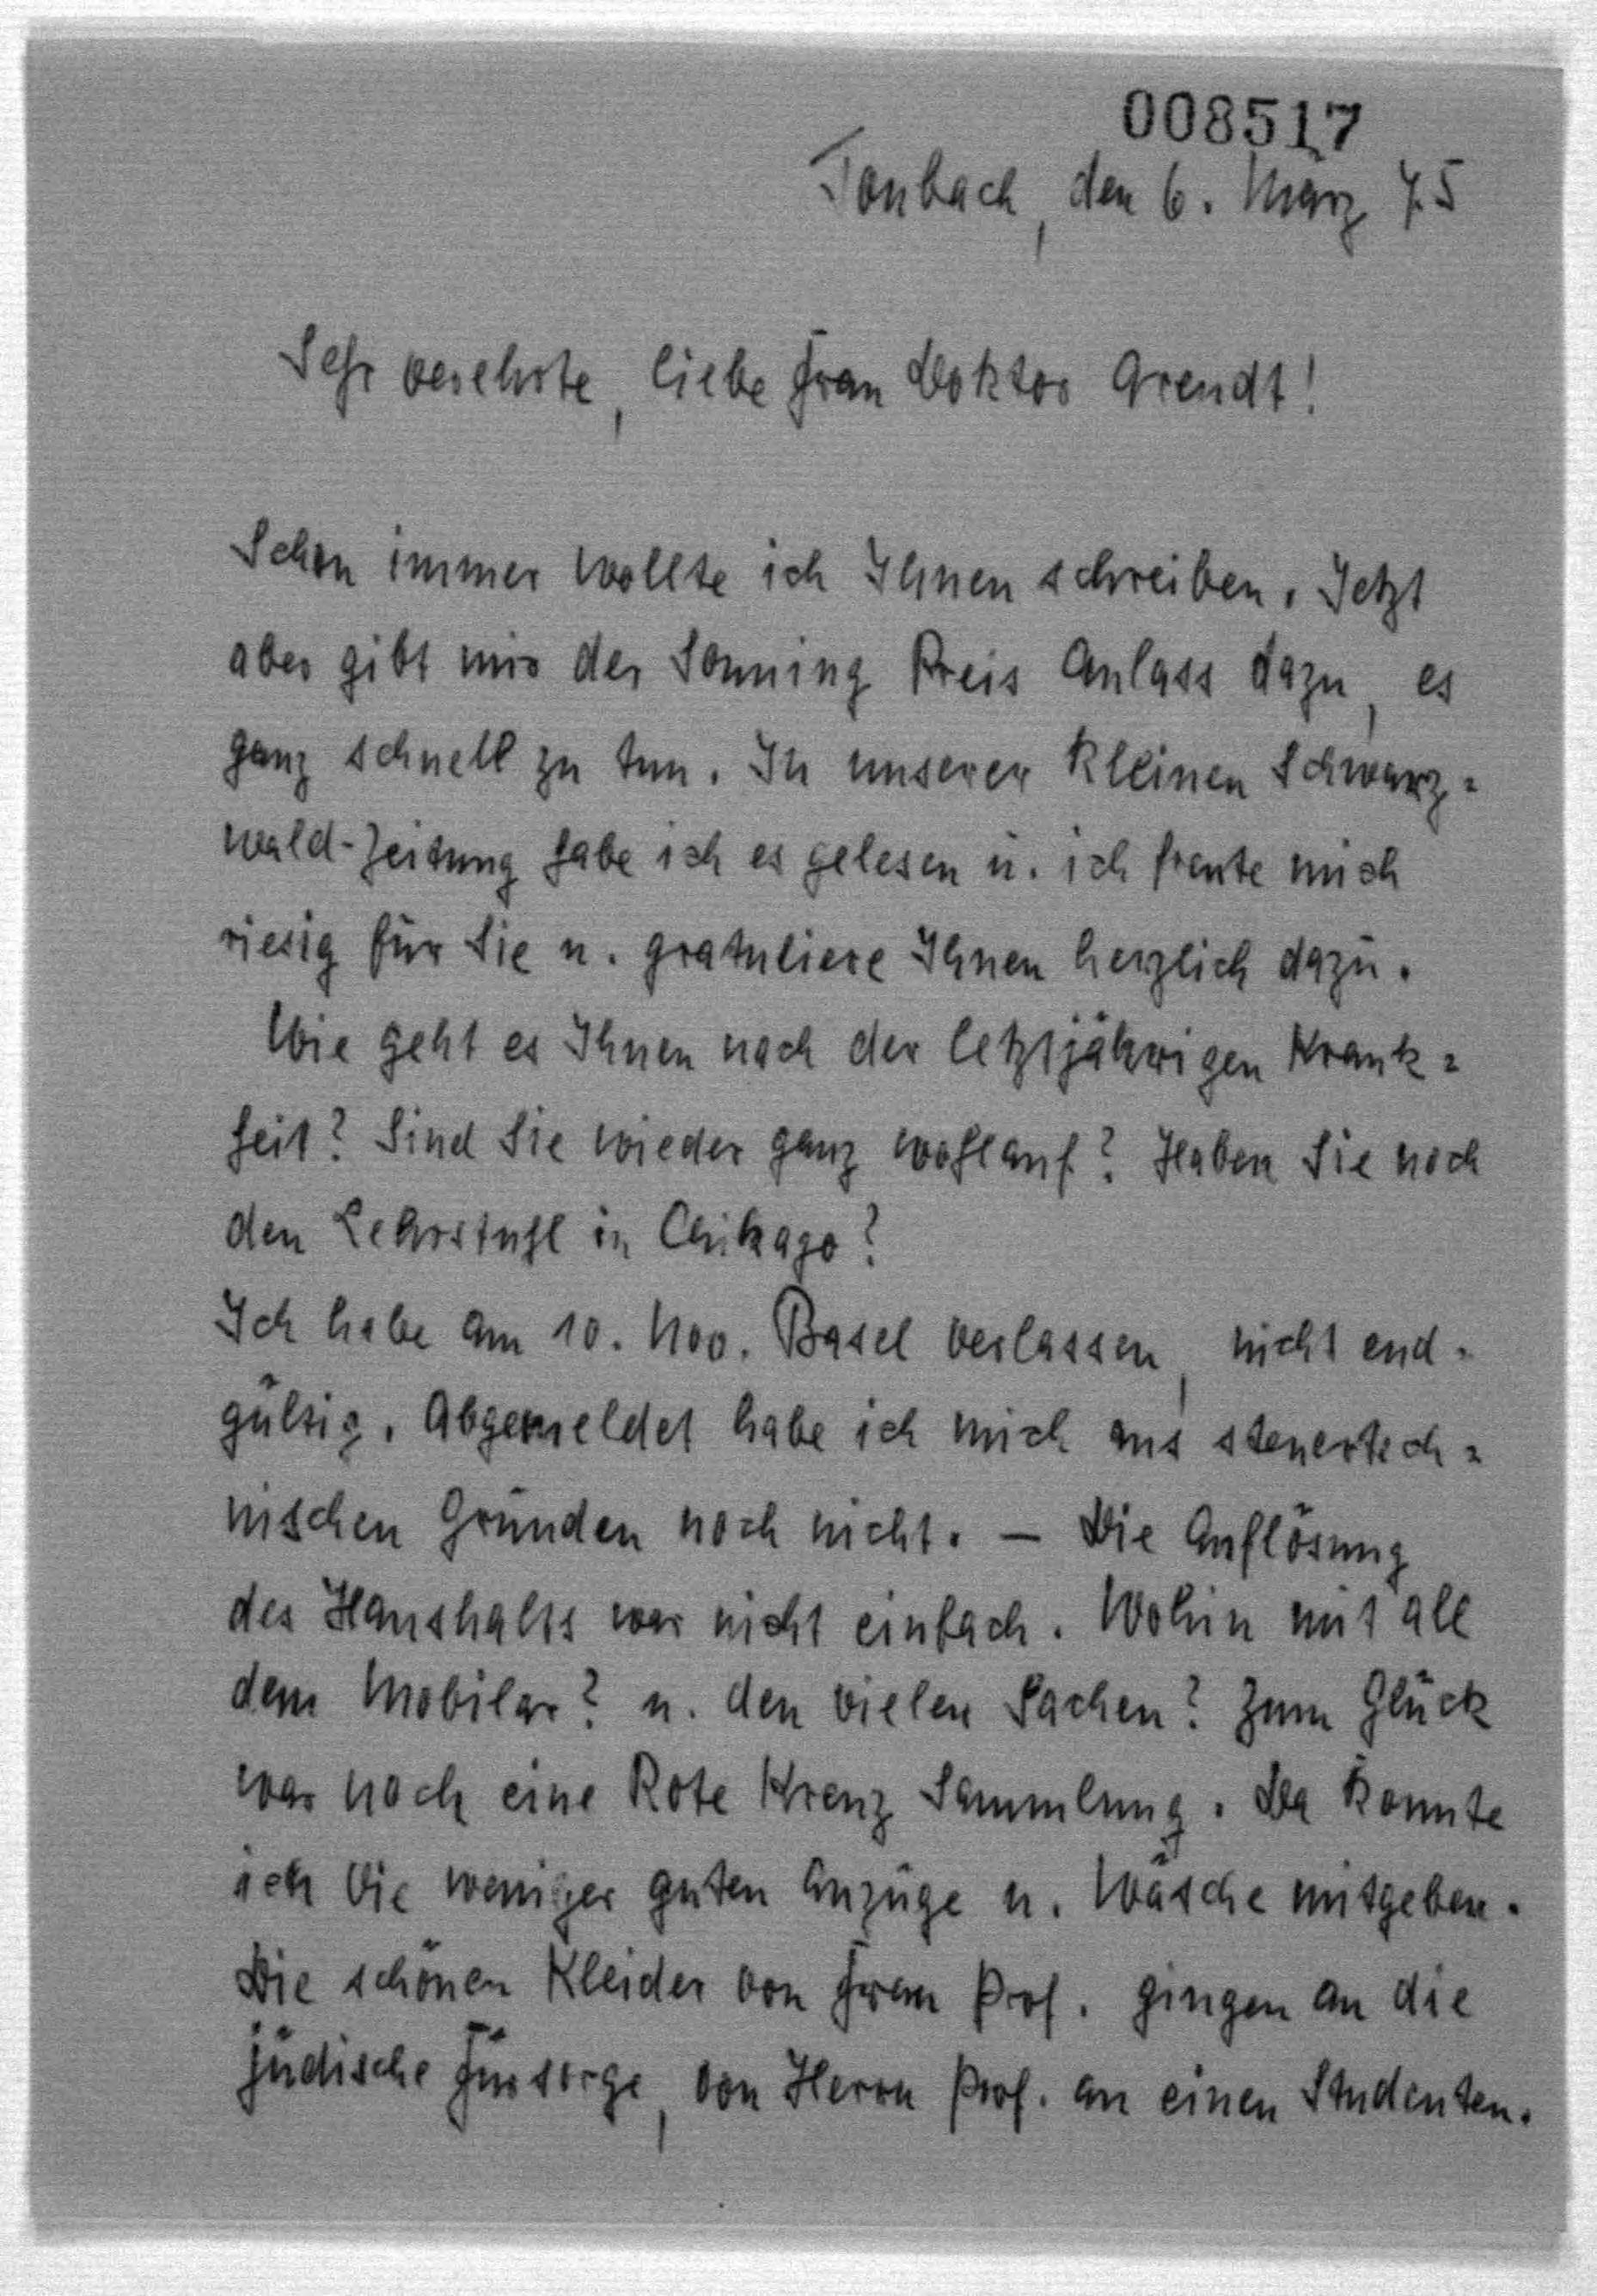 008517
Tonbach, den 6. März 75
Sehr verehrte, liebe Frau Doktor Arendt!
Schon immer wollte ich Ihnen schreiben. Jetzt
aber gibt mir der Sonning Preis Anlass dazu, es
ganz schnell zu tun. In unserer kleinen Schwarz=
wald-Zeitung habe ich es gelesen u. ich freute mich
riesig für Sie u. gratuliere Ihnen herzlich dazu.
Wie geht es Ihnen nach der letztjährigen Krank=
heit? Sind Sie wieder ganz wohlauf? Haben Sie noch
den Lehrstuhl in Chikago?
Ich habe am 10. Nov. Basel verlassen, nicht end=
gültig. Abgemeldet habe ich mich aus steuertech=
nischen Gründen noch nicht. — Die Auflösung
des Haushalts war nicht einfach. Wohin mit all
dem Mobilar? u. den vielen Sachen? Zum Glück
war noch eine Rote Kreuz Sammlung. Da konnte
ich die weniger guten Anzüge u. Wäsche mitgeben.
Die schönen Kleider von Frau Prof. gingen an die
jüdische Fürsorge, von Herrn Prof. an einen Studenten.